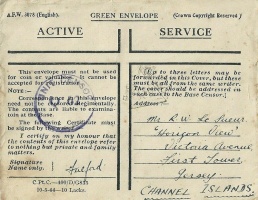 A.F.W. 3078 (English).
GREEN ENVELOPE
(Crown Copyright Reserved)
ACTIVE
SERVICE
This envelope must not be used
for coin or valuables. It cannot be
accepted for registration.
NOTE:—
Correspondence in this envelope
need not be censored Regimentally.
The contents are liable to examina-
tion at the Base.
The following Certificate must
be signed by the writer:—
I certify on my honour that
the contents of this envelope refer
to nothing but private and family
matters.
Signature
Name only.
Up to three letters may be
forwarded in this cover, but these
must be all from the same writer.
The cover should be addressed in
such case to the Base Censor.
Mr R W Le Sueur
"Horizon View"
Victoria Avenue,
First Tower,
Jersey
CHANNEL ISLANDS.